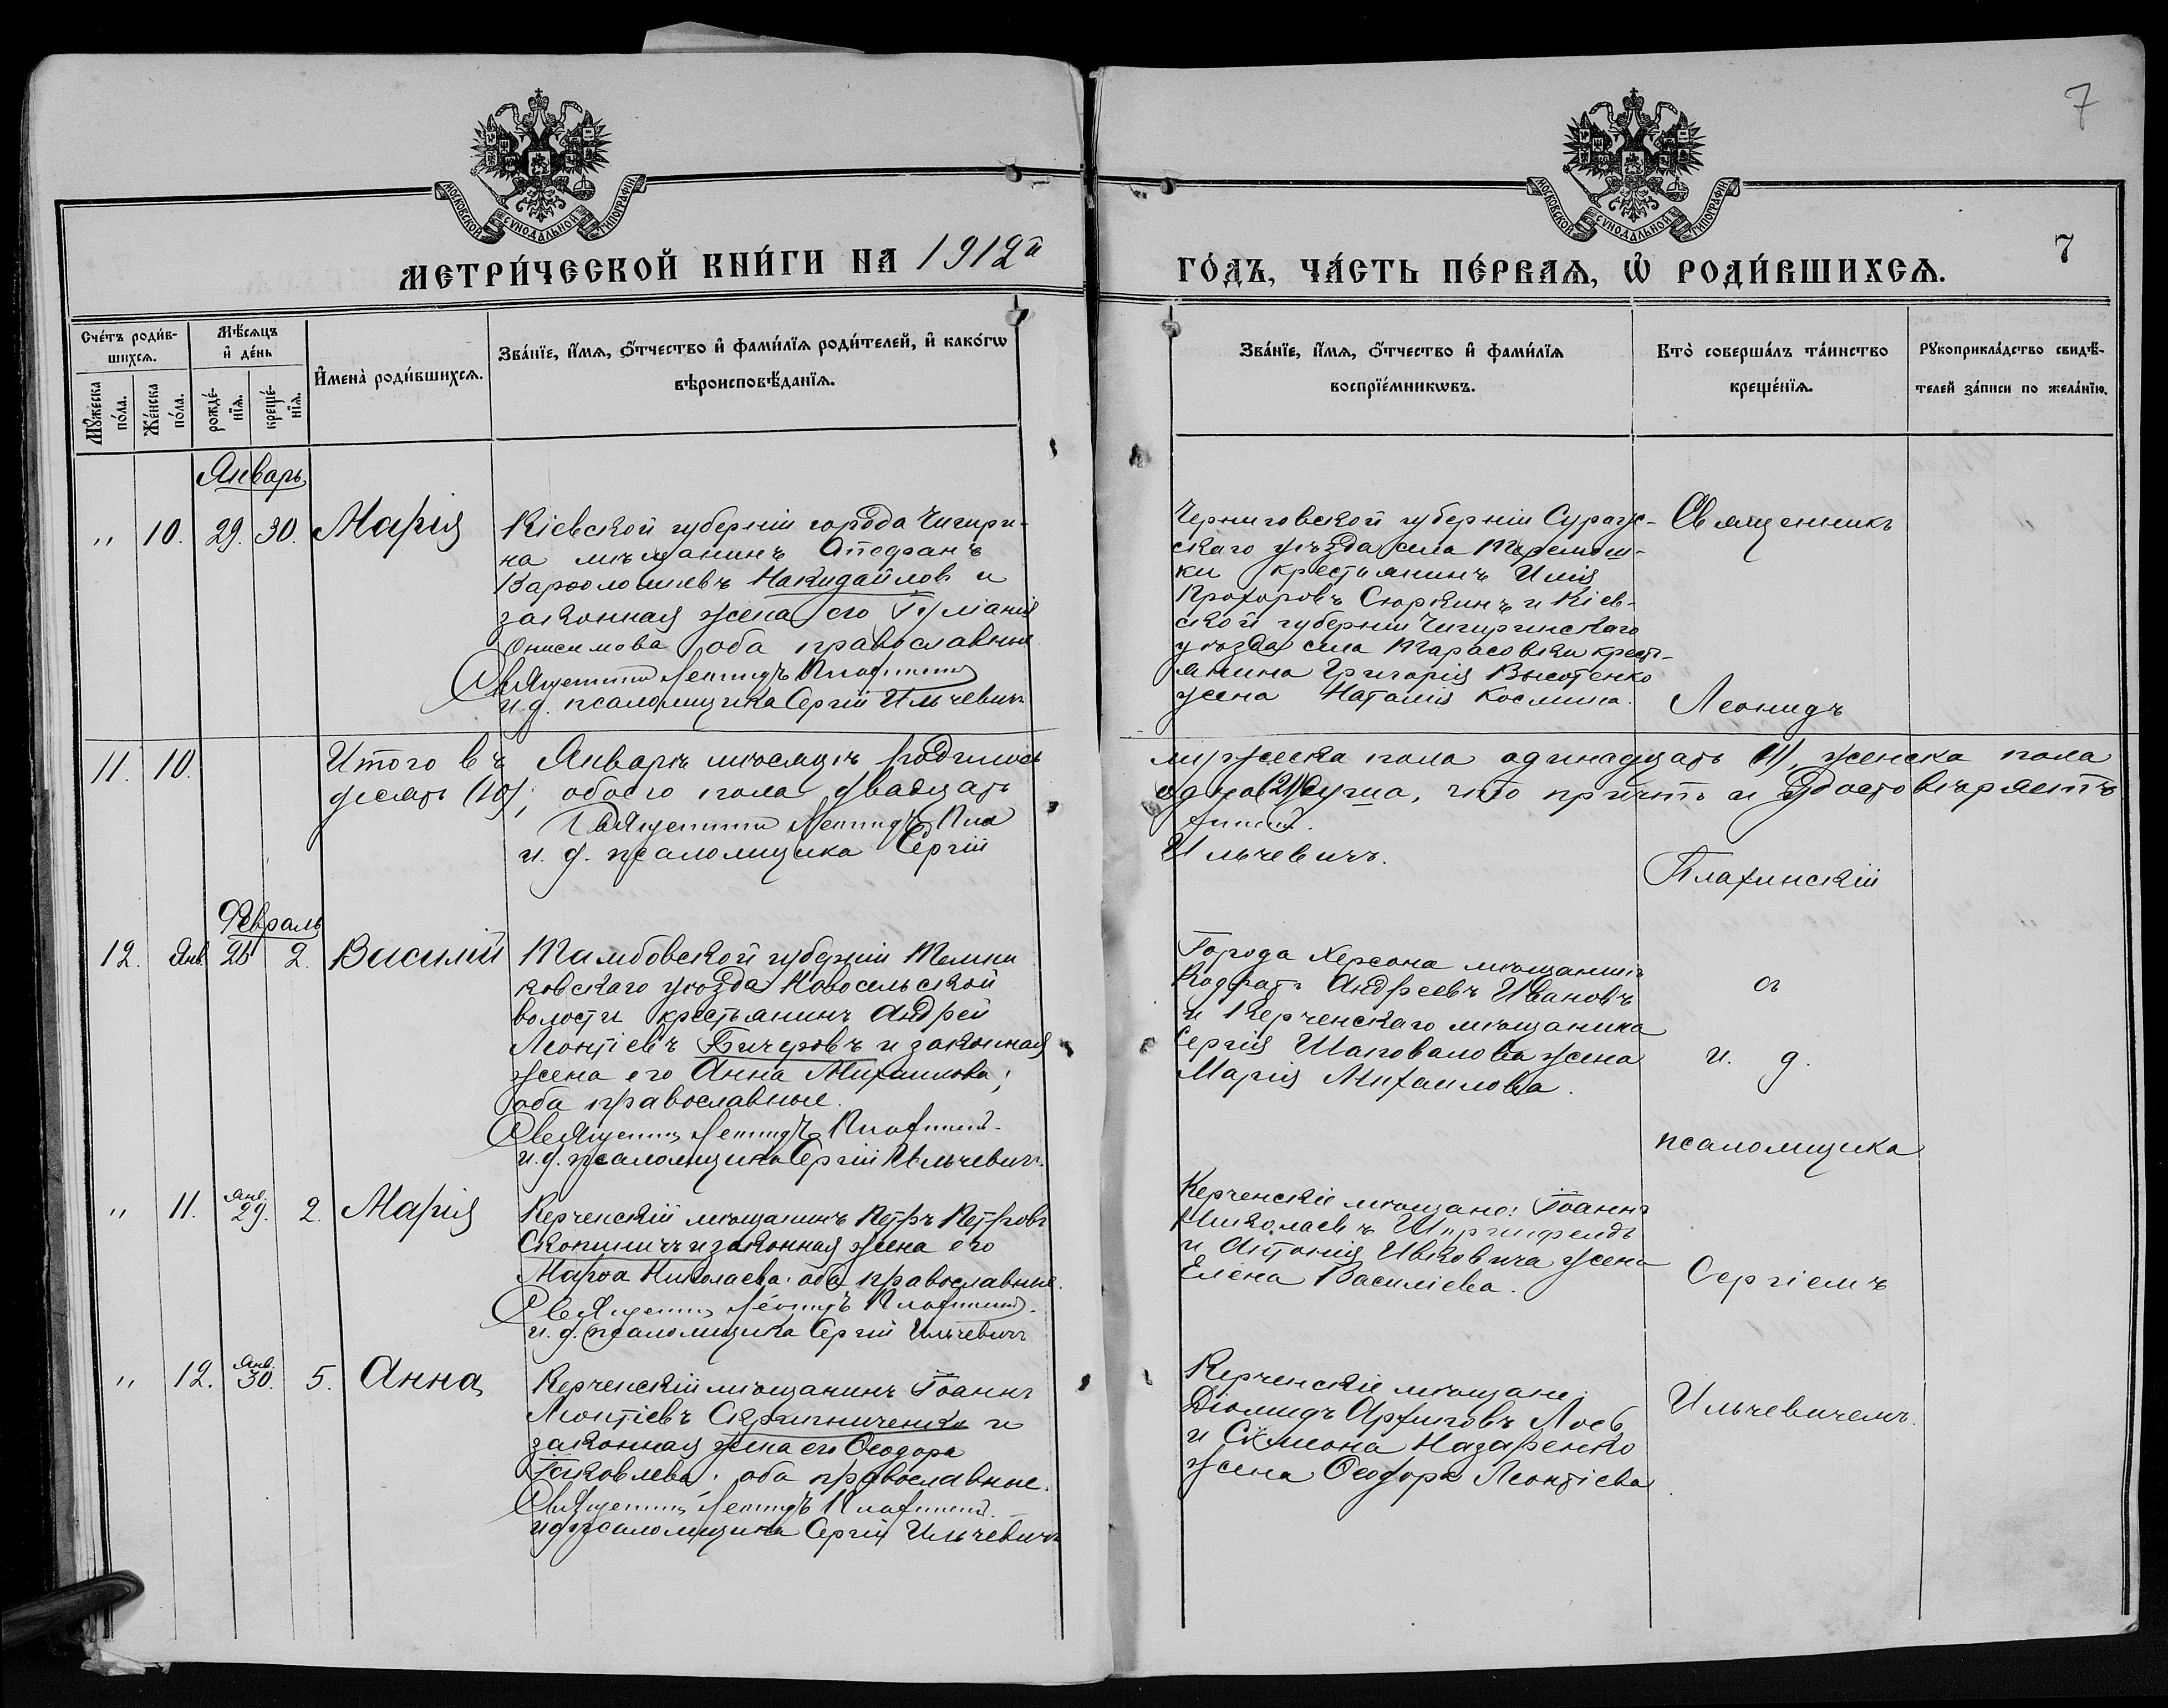 7
МОСКОВСКОЙ СУНОДАЛЬНОЙ ТИПОГРАФІИ
МОСКОВСКОЙ СУНОДАЛЬНОЙ ТИПОГРАФІИ
МЕТРИ́ЧЕСКОЙ КНИ́ГИ НА 1912й
ГО́ДЪ, ЧА́СТЬ ПЕ́РВАѦ, Ѡ҆ РОДИ́ВШИХСѦ.
7
Сче́тъ роди́в-
шихсѧ.
Мꙋ́жеска
по́ла.
Же́нска
по́ла.
Мѣ́сѧцъ
и҆ де́нь
рожде́-
нїѧ.
креще́-
нїѧ.
И҆мена̀ роди́вшихсѧ.
Зва́нїе, и҆́мѧ, ѻ҆́тчество и҆ фами́лїѧ роди́телей, и҆ како́гѡ
вѣроисповѣ́данїѧ.
Зва́нїе, и҆́мѧ, ѻ҆́тчество и҆ фами́лїѧ
воспрїе́мникѡвъ.
Кто̀ соверша́лъ та́инство
креще́нїѧ.
Рꙋкоприкла́дство свидѣ́-
телей за́писи по жела́нїю.
Январь
„ 10. 29. 30. Марія
Кіевской губерніи города Чигири-
на мѣщанинъ
Варѳоломіевъ Накидайлов и
законная жена его
Онисимова оба православные
Священникъ Леонидъ Плахинскій
и. д. псаломщика Сергій Ильчевичъ
Черниговской губерніи Сураж-
скаго уѣзда села
ки крестьянинъ Илія
Прохоровъ Сюркинъ и Кіев-
ской губерніи Чигиринскаго
уѣзда села Тарасовки кресть-
янина Григорія Высотенко
жена Наталія Космина.
Священникъ
Леонидъ
11. 10. Итого въ Январѣ мѣсяцѣ родилось
мужеска пола одинадцать (11), женска пола
десять (10); обоего пола двадцать
одна (21) душа, что причтъ и удостовѣряетъ
Священникъ Леонидъ Пла
хинскій.
и. д. псаломщика Сергій
Ильчевичъ.
Плахинскій
Февраль
12. Янв. 2. Василій
Тамбовской губерніи Темни
ковскаго уѣзда Новосельской
волости крестьянинъ Андрей
Леонтіевъ Бичуровъ и законная
жена его Анна Михаилова;
оба православные.
Священникъ Леонидъ Плахинскій.
и. д. псаломщика Сергій Ильчевичъ.
Города Херсона мѣщанинъ
Кодратъ Андреевъ Ивановъ
и Керченскаго мѣщанина
Сергія Шаповалова жена
Марія Михаилова.
съ
и. д.
псаломщика
„ 11. Янв. 29. 2. Марія
Керченскій мѣщанинъ Петръ Петровъ
Скопиничъ и законная жена его
Марѳа Николаева. оба православные.
Священникъ Леонидъ Плахинскій.
и. д. псаломщика Сергій Ильчевичъ
Керченскіе мѣщане: Іоаннъ
Николаевъ
и Антонія Ивковича жена
Елена Василіева.
Сергіемъ
„ 12. Янв. 30. 5. Анна
Керченскій мѣщанинъ Іоаннъ
Леонтіевъ Скрипниченко и
законная жена его Ѳеодора
Іаковлева. оба православные.
Священникъ Леонидъ Плахинскій.
и д псаломщика Сергій Ильчевичъ
Керченскіе мѣщане:
Діомидъ Архиповъ Лось
и Симеона Назаренко
жена Ѳеодора Леонтіева.
Ильчевичемъ.